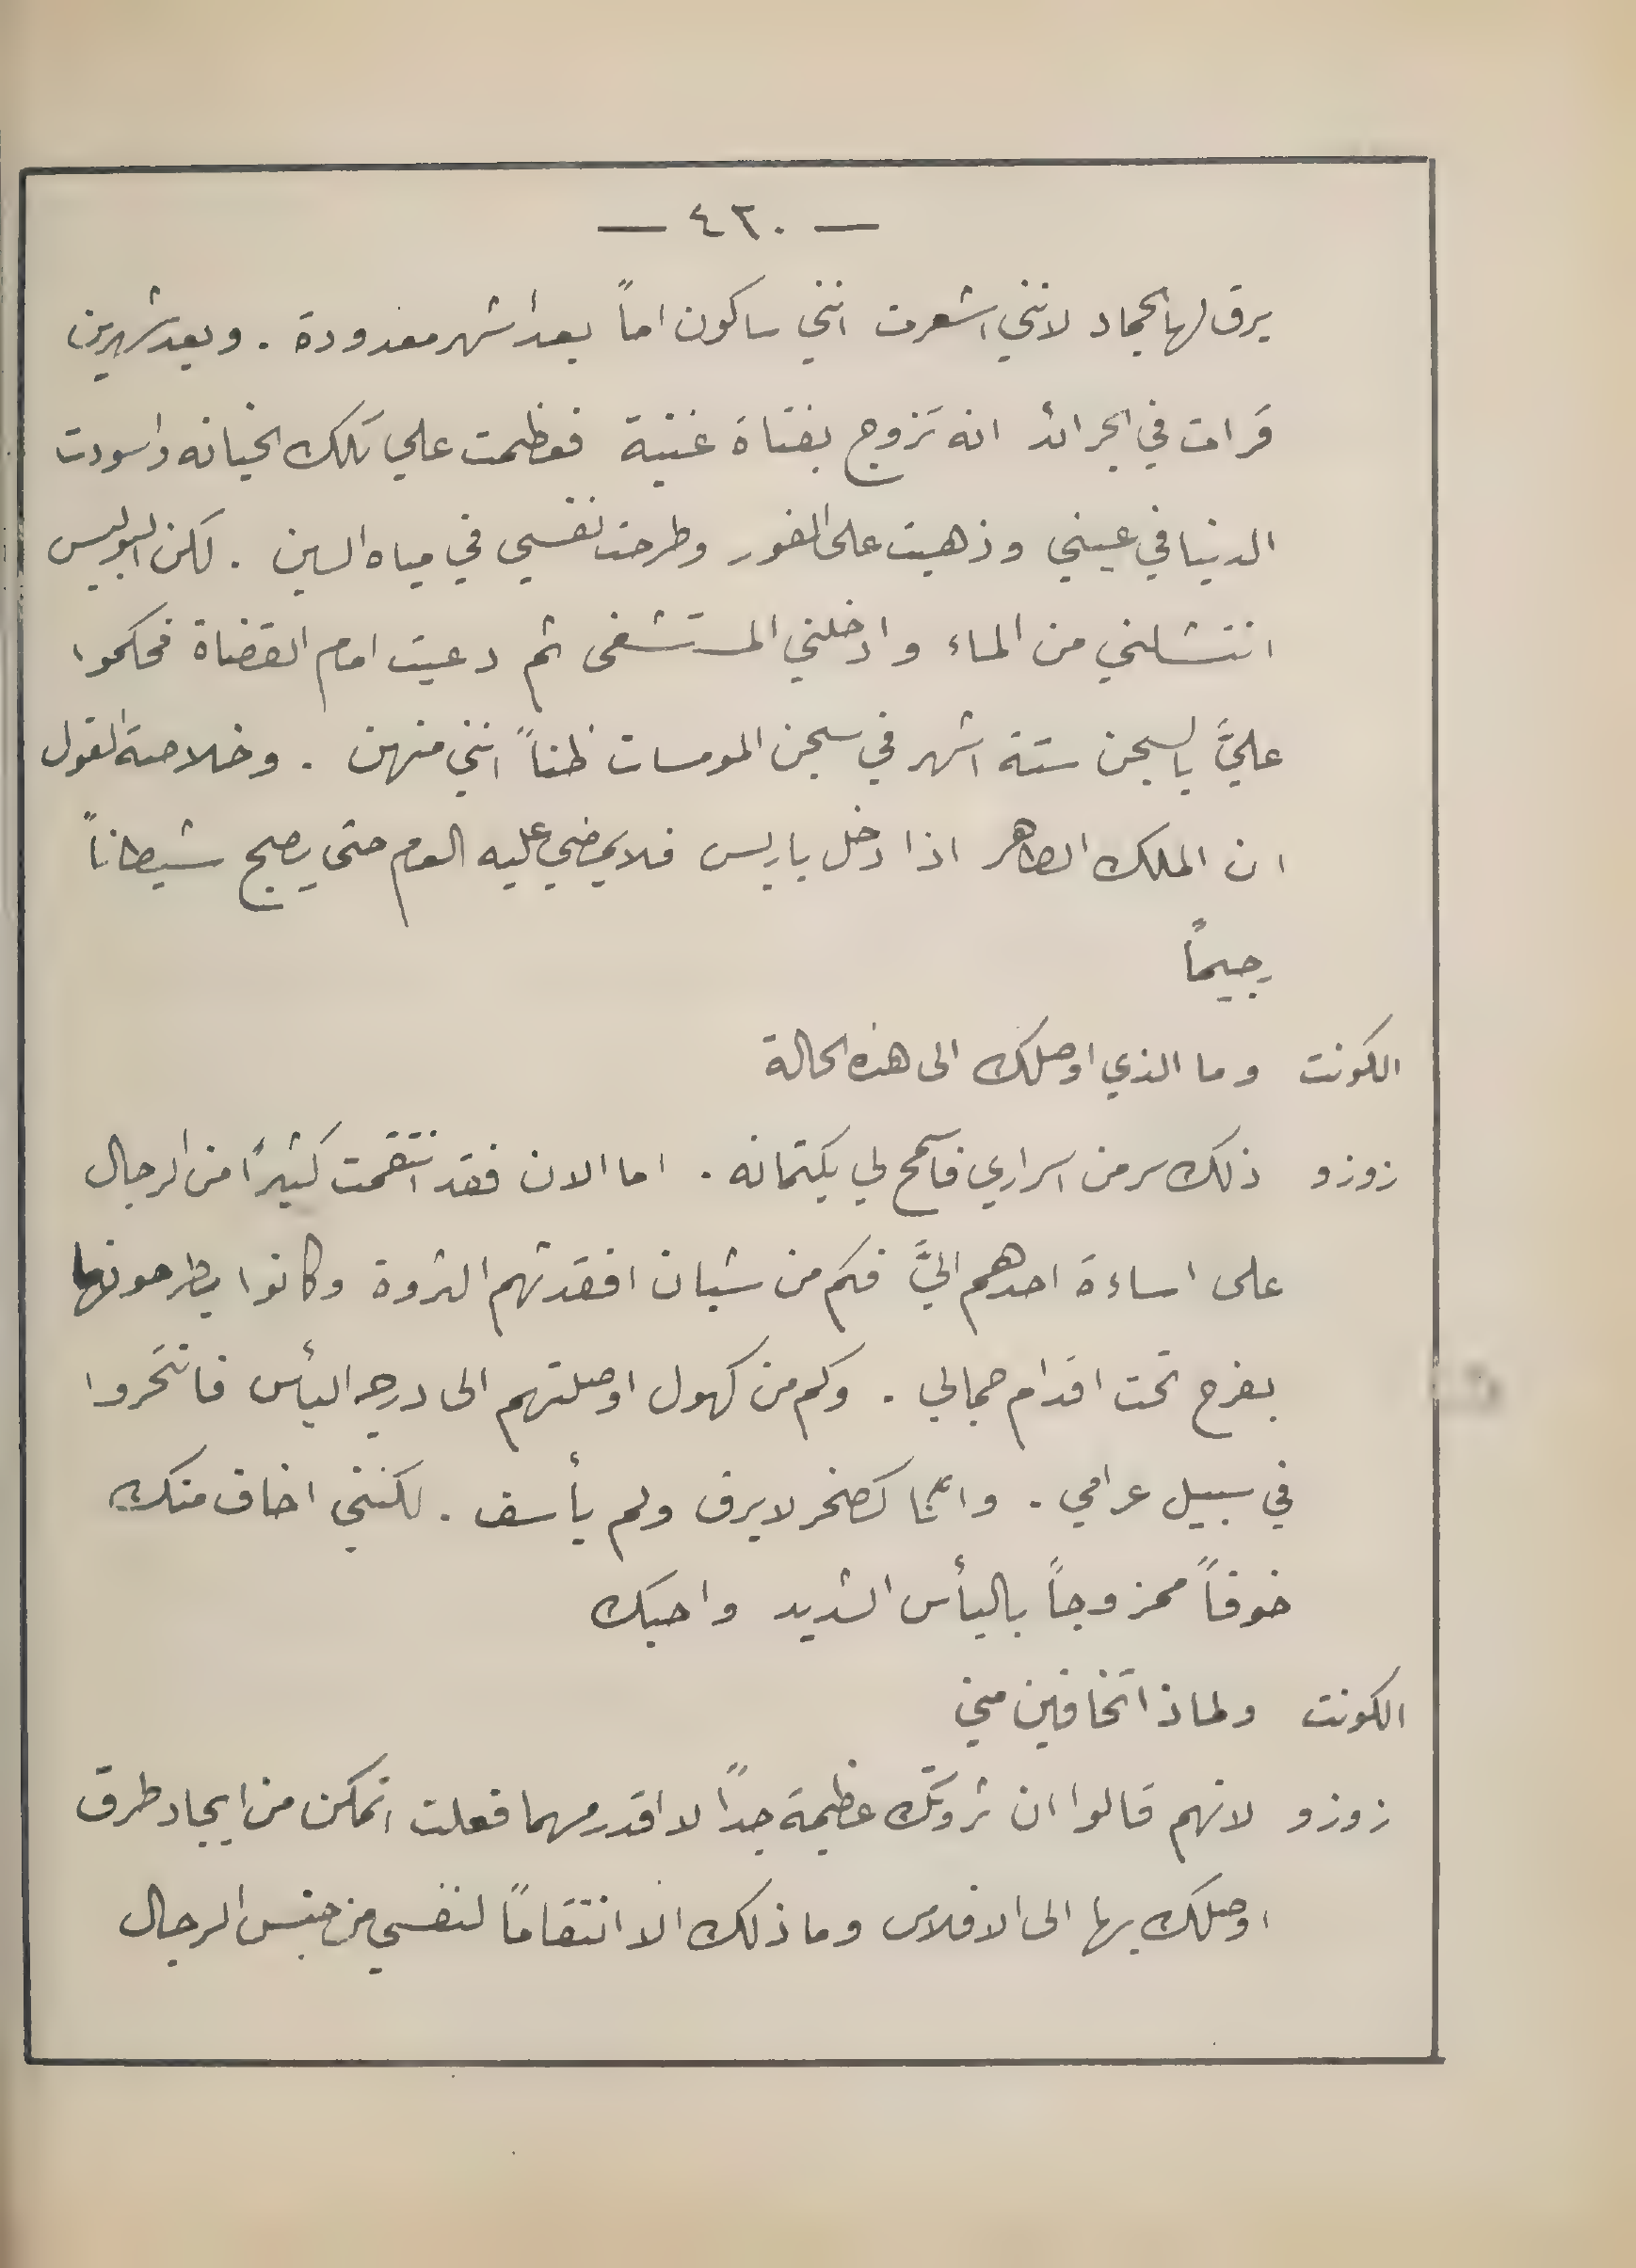 — ٤٢٠ —
يرق لها الجماد لانني اشعرت انني ساكون اماً بعد اشهر معدودة . وبعد شهرين
قرات في الجرائد انه تزوج بفتاة غنية فعظمت علي تلك الخيانه واسودت
الدنيا في عيني وذهبت على الفور وطرحت نفسي في مياه السين . لكن البوليس
انتشلني من الماء وادخلني المستشفى ثم دعيت امام القضاة فحكموا
عليَّ بالسجن ستة اشهر في سجن المومسات ظناً انني منهن . وخلاصة القول
ان الملك الطاهر اذا دخل باريس فلا يمضي عليه العام حتى يصبح شيطاناً
رجيماً
الكونت وما الذي اوصلك الى هذه الحالة
زوزو ذلك سر من اسراري فاسمح لي بكتمانه . اما الان فقد انتقمت كثيرًا من الرجال
على اساءة احدهم اليَّ فكم من شبان افقدتهم الثروة وكانوا يطرحونها
بفرح تحت اقدام جمالي . وكم من كهول اوصلتهم الى درجه اليأس فانتحروا
في سبيل غرامي . وانا كصخر لا يرق ولم يأسف . لكنني اخاف منك
خوفاً ممزوجاً باليأس الشديد واحبك
الكونت ولماذا تخافين مني
زوزو لانهم قالوا ان ثروتك عظيمة جداً لا اقدر مهما فعلت اتمكن من ايجاد طرق
اوصلك بها الى الافلاس وما ذلك الا انتقاماً لنفسي من جنس الرجال